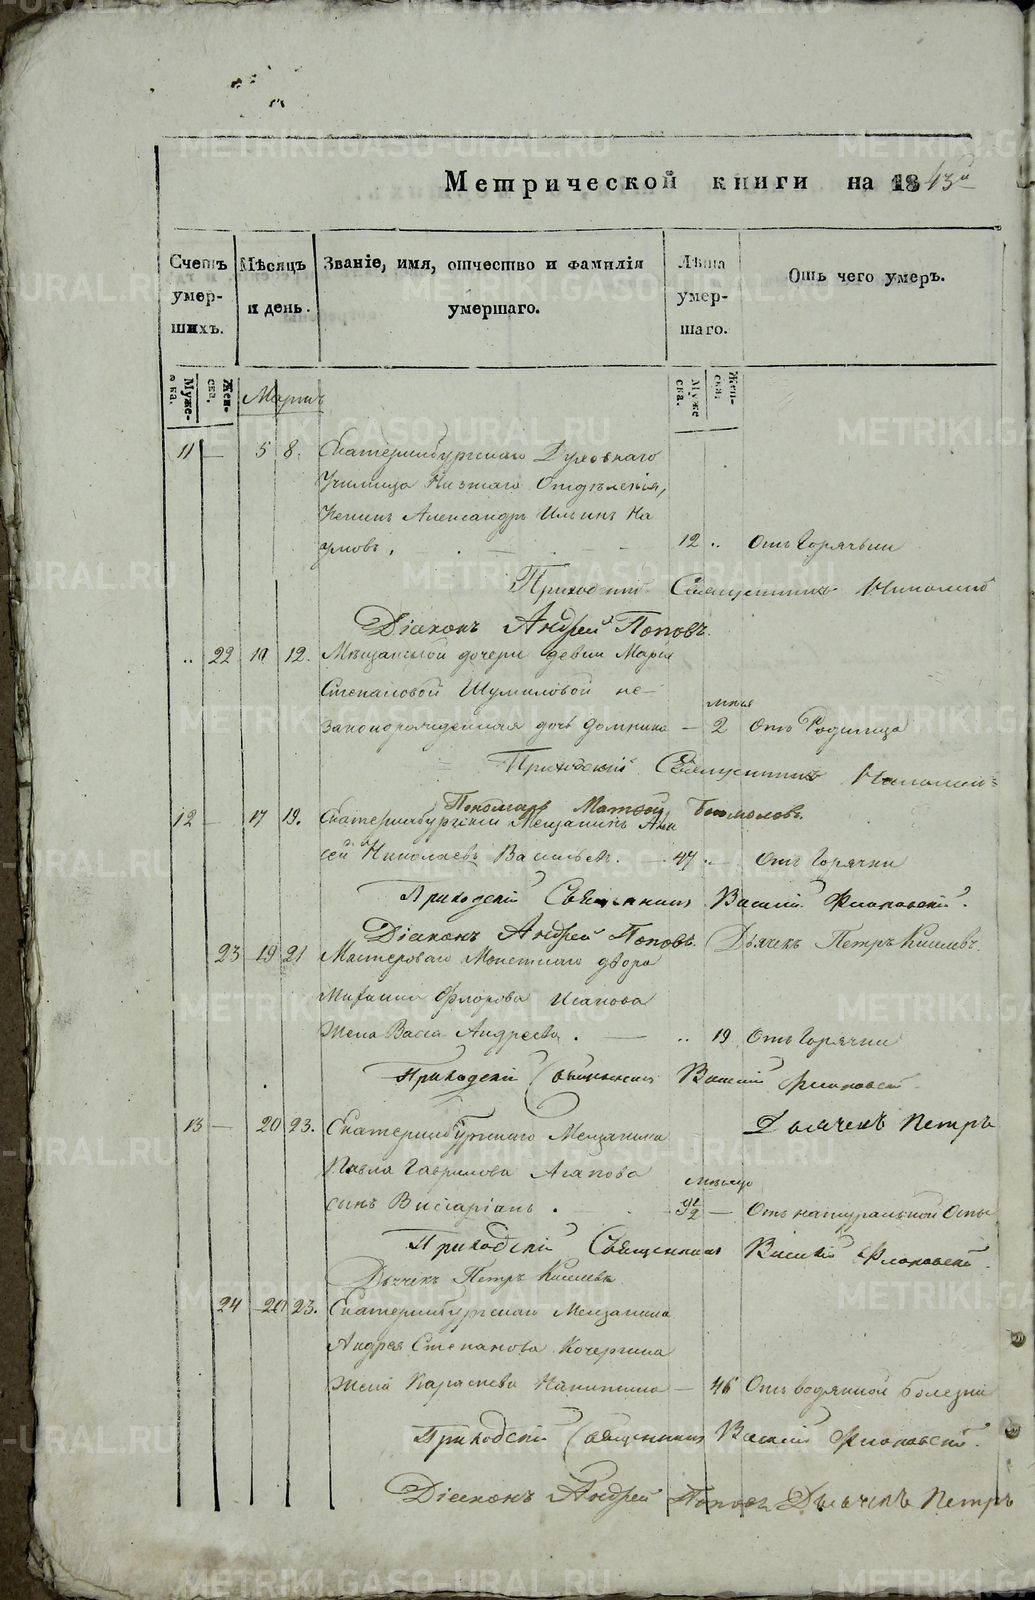 Метрической книги на 1843й
Счетъ умер- шихъ.
Мѣсяцъ и день.
Званіе, имя, отчество и фамилія умершаго.
Лѣта умер- шаго.
Отъ чего умеръ.
Муже- ска.
Жен- ска.
Муже ска.
Жен- ска.
Мартъ
11 — 5 8. Екатеринбургскаго Духовнаго
Училища Низшаго Отдѣленія,
Ученикъ Александръ Ильинъ На
умовъ, 12 .. Отъ Горячьки
Приходскій Священникъ Николай
Діаконъ Андрей Поповъ.
.. 22 10 12. Мѣщанской дочери девки Марьи
Степановой Шумиловой не-
законорожденная дочь Домника — 2 Отъ Родимца
Приходскій Священникъ Николай
Пономарь Матвей Богомоловъ.
12 — 17 19. Екатеринбургскій Мещанинъ
сей Николаевъ Васильевъ. — 47 .. Отъ Горячки
Приходскій Священникъ Василій Флоровскій.
Діаконъ Андрей Поповъ. Дьячекъ Петръ Киселевъ
23 19 21 Мастероваго Монетнаго двора
Михаила Фролова Исакова
Жена Васса Андреева. — .. 19 Отъ Горячки
Приходскій Священникъ Василій Флоровскій
Дьячекъ Петръ
13 — 20 23. Екатеринбургскаго Мещанина
Павла Гаврилова Агапова
месяцо
сынъ Висаріонъ. — Отъ натуральной Оспы
Приходскій Священникъ Василій Флоровскій.
Дьячекъ Петръ Киселевъ
24 — 20 23. Екатеринбургскаго Мещанина
Андрея Степанова Кочергина
Жена Параскева Никитина — 46 Отъ водяной Болезни
Приходскій Священникъ Василій Флоровскій.
Діаконъ Андрей Поповъ Дьячекъ Петръ
METRIKI.GASO-URAL.RU